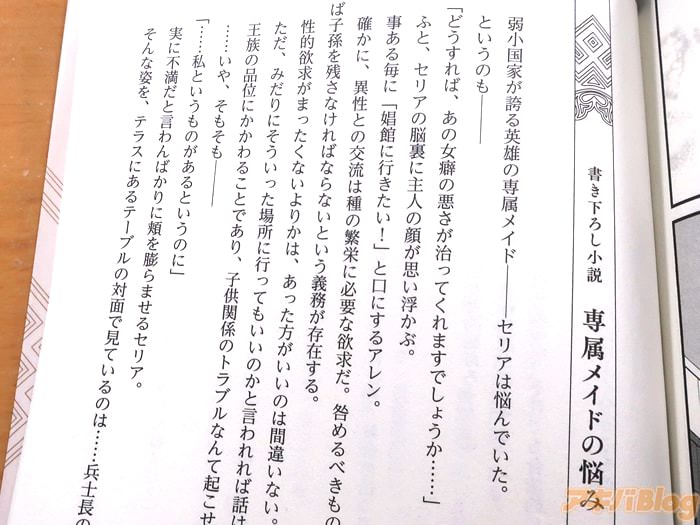 書き下ろし小説 専属メイドの悩み
弱小国家が誇る英雄の専属メイド――セリアは悩んでいた。
というのも――
「どうすれば、あの女癖の悪さが治ってくれますでしょうか……」
ふと、セリアの脳裏に主人の顔が思い浮かぶ。
事ある毎に「娼館に行きたい！」と口にするアレン。
確かに、異性との交流は種の繁栄に必要な欲求だ。咎めるべきもの
ば子孫を残さなければならないという義務が存在する。
性的欲求がまったくないよりかは、あった方がいいのは間違いない。
ただ、みだりにそういった場所に行ってもいいのかと言われれば話は
王族の品位にかかわることであり、子供関係のトラブルなんて起こせ
……いや、そもそも――
「……私というものがあるというのに」
実に不満だと言わんばかりに頬を膨らませるセリア。
そんな姿を、テラスにあるテーブルの対面で見ているのは……兵士長の
アキバBlog